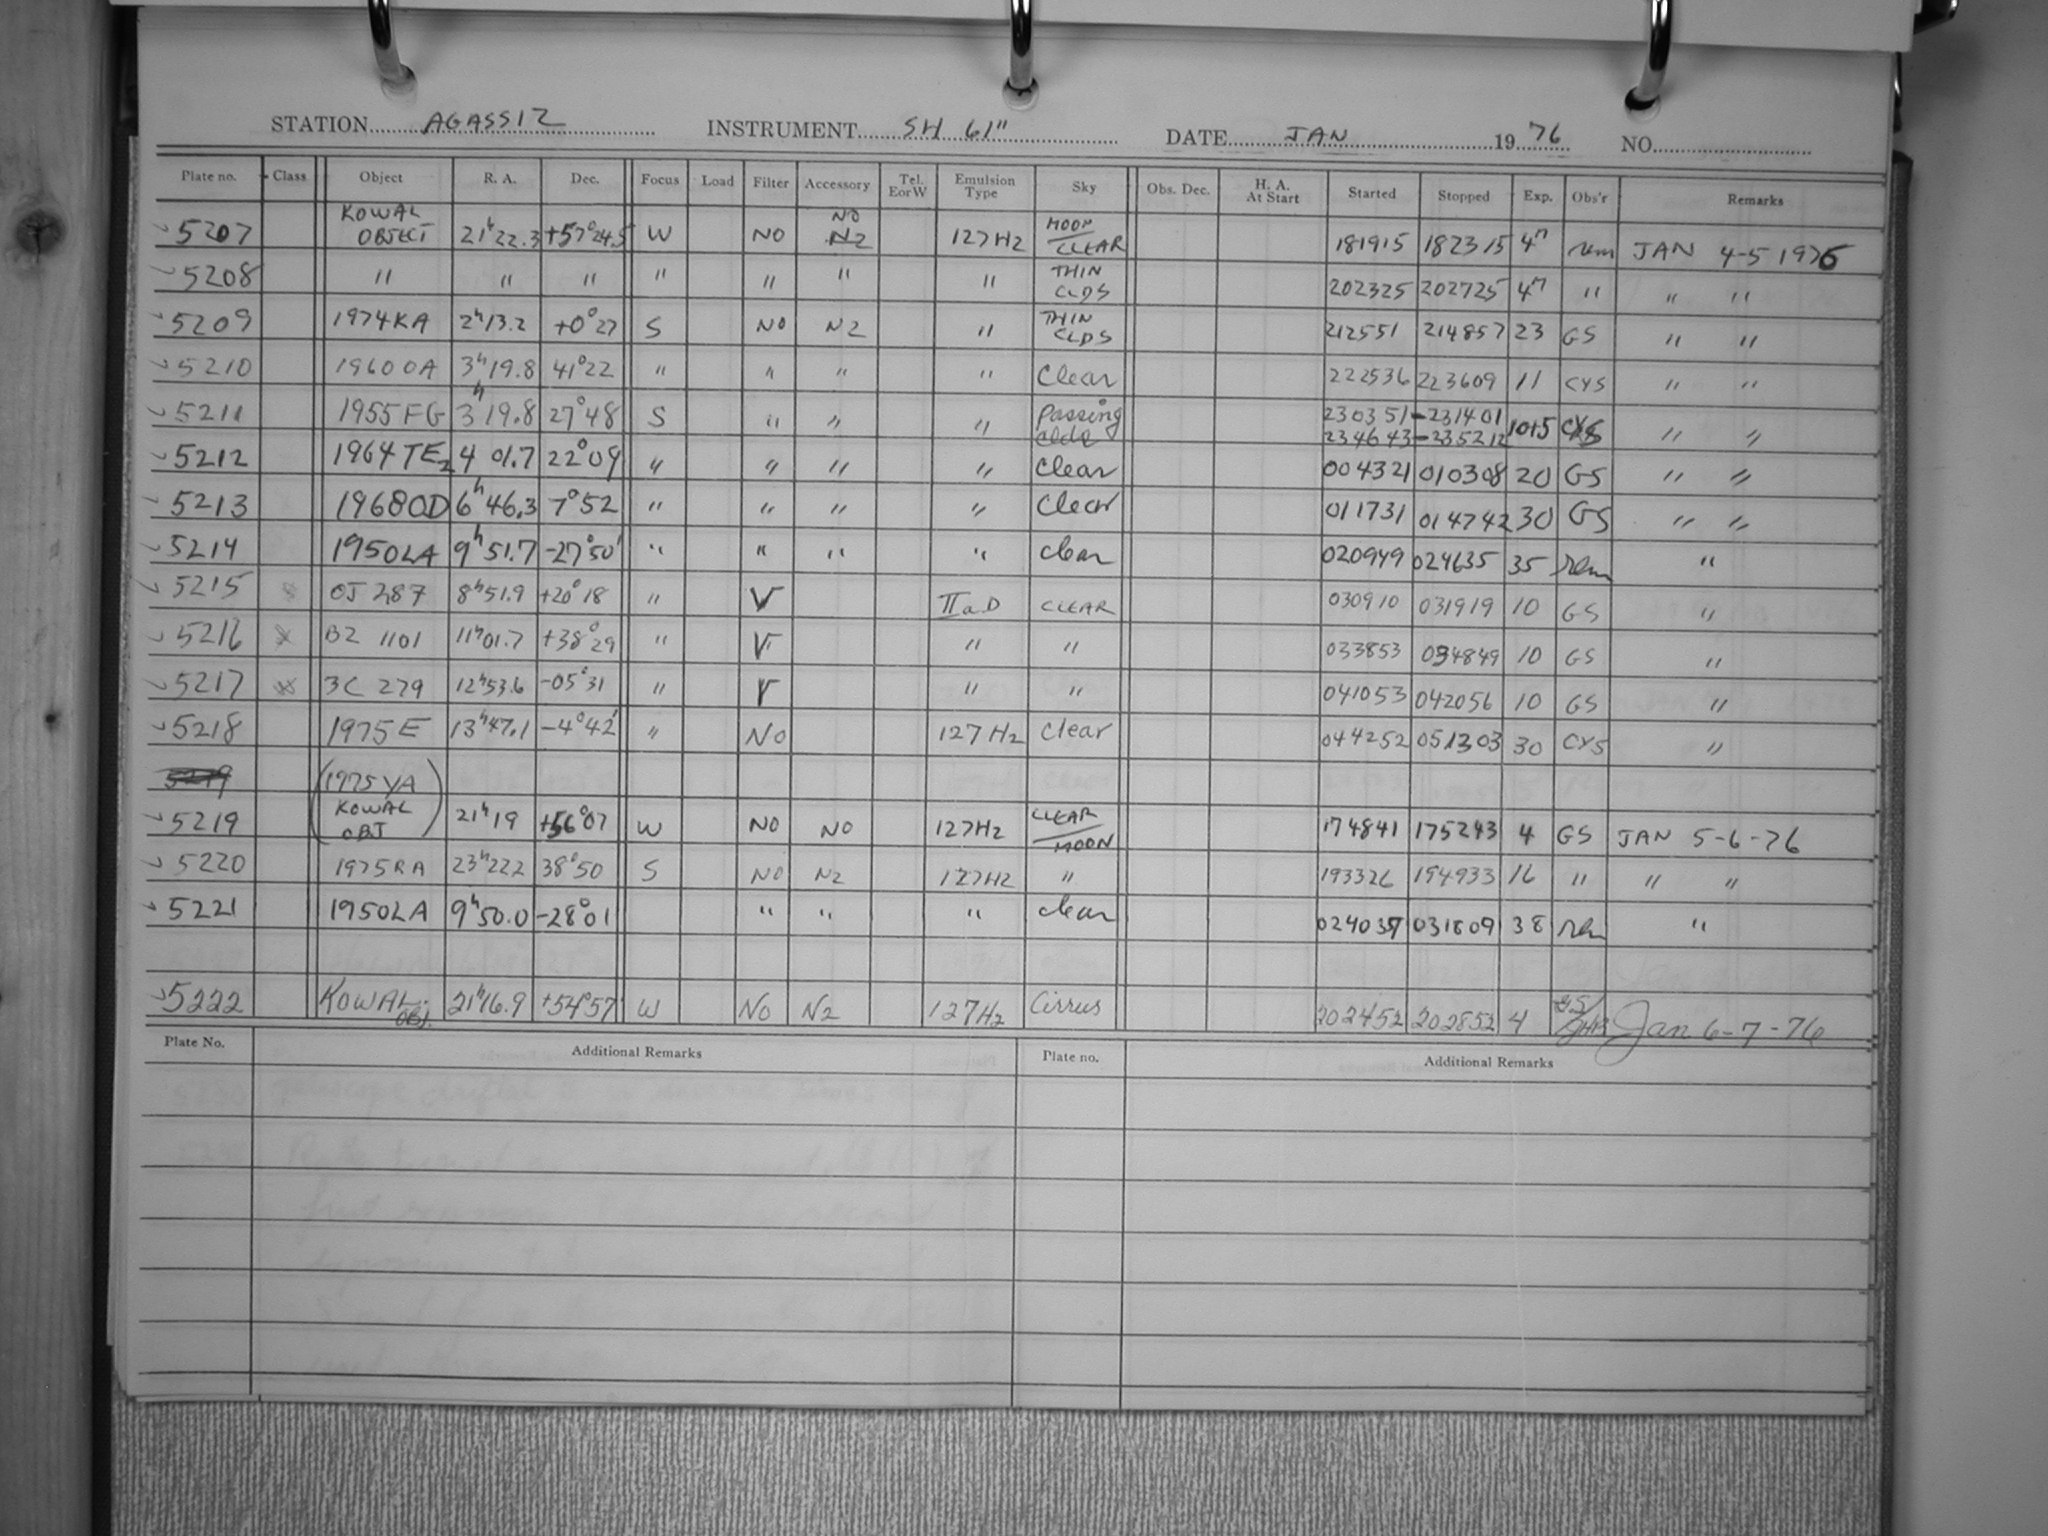 STATION AGASSIZ INSTRUMENT SH 61" DATE JAN 19 76 NO.
Plate no. Class Object R. A. Dec. Focus Load Filter Accessory Tel. EorW Emulsion Type Sky Obs. Dec. H. A. At Start Started Stopped Exp. Obs'r Remarks
5207 KOWAL OBJECT 21h22.3 +57°24.5 W NO NO N2 127H2 MOON/CLEAR 181915 182315 4m rem JAN 4-5 1976
5208 " " " " " " " THIN CLDS 202325 202725 4m " " "
5209 1974KA 2h13.2 +0°27 S NO N2 " THIN CLDS 212551 214857 23 GS " "
5210 1960OA 3h19.8 41°22 " " " " Clear 222536 223609 11 CYS " "
5211 1955FG 3h19.8 27°48 S " " " Passing clds 230351-231401 234643-235212 1015 CYS " "
5212 1964TE2 4 01.7 22°09 " " " " Clear 004321 010308 20 GS " "
5213 1968OD 6h46.3 7°52 " " " " Clear 011731 014742 30 GS " "
5214 1950LA 9h51.7 -27°50' " " " " clear 020949 024635 35 rem "
5215 OJ 287 8h51.9 +20°18 " V IIaD CLEAR 030910 031919 10 GS "
5216 B2 1101 11h01.7 +38°29 " V " " 033853 034849 10 GS "
5217 3C 279 12h53.6 -05°31 " V " " 041053 042056 10 GS "
5218 1975E 13h47.1 -4°42' " NO 127H2 Clear 044252 051303 30 CYS "
5219 (1975YA
5219 KOWAL OBJ) 21h19 +56°07 W NO NO 127H2 CLEAR/MOON 174841 175243 4 GS JAN 5-6-76
5220 1975RA 23h22.2 38°50 S NO N2 127H2 " 193326 194933 16 " " "
5221 1950LA 9h50.0 -28°01 " " " clear 024037 031809 38 rem "
5222 KOWAL OBJ. 21h16.9 +54°57' W NO N2 127H2 Cirrus 202452 202852 4 GS/ Jan 6-7-76
Plate No. Additional Remarks Plate no. Additional Remarks